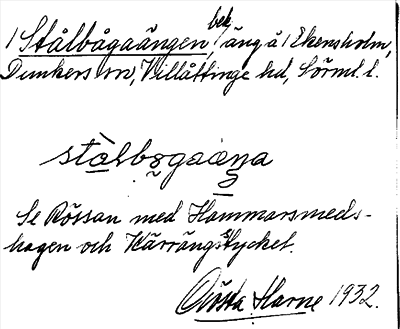 1 Stålbågaängen, bek. äng å 1 Ekensholm,
Dunkers sn, Villåttinge hd, Sörml. l.
stålbogaäŋa
Se Rössan med Hammarsmeds-
hagen och Kärrängstycket.
Gösta Harne 1932.